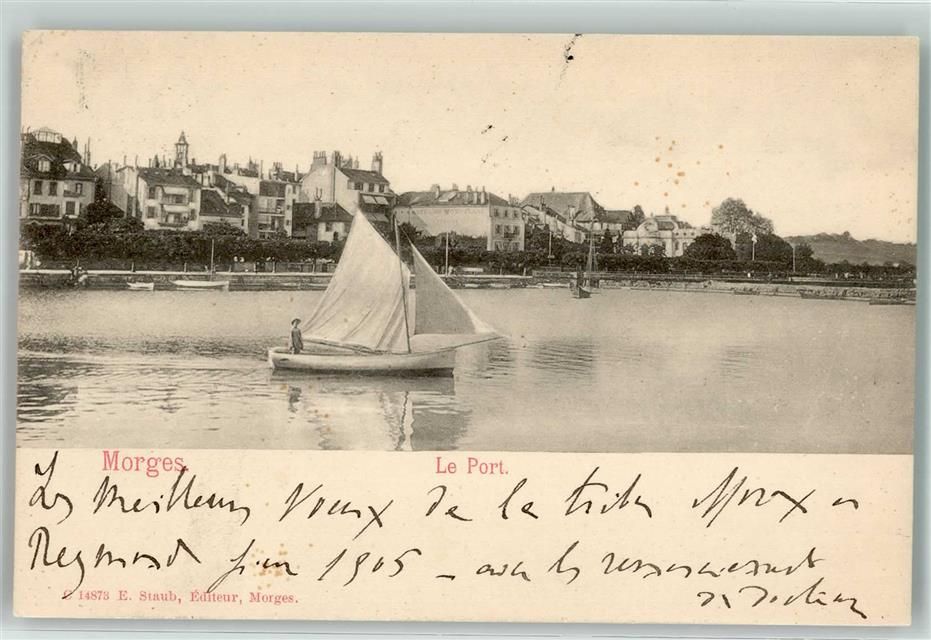 Morges.
Le Port.
Les Meilleurs Vœux de la tribu Morox a
Reymond pour 1905 – avec les remerciements
du docteur
C 14873 E. Staub, Éditeur, Morges.